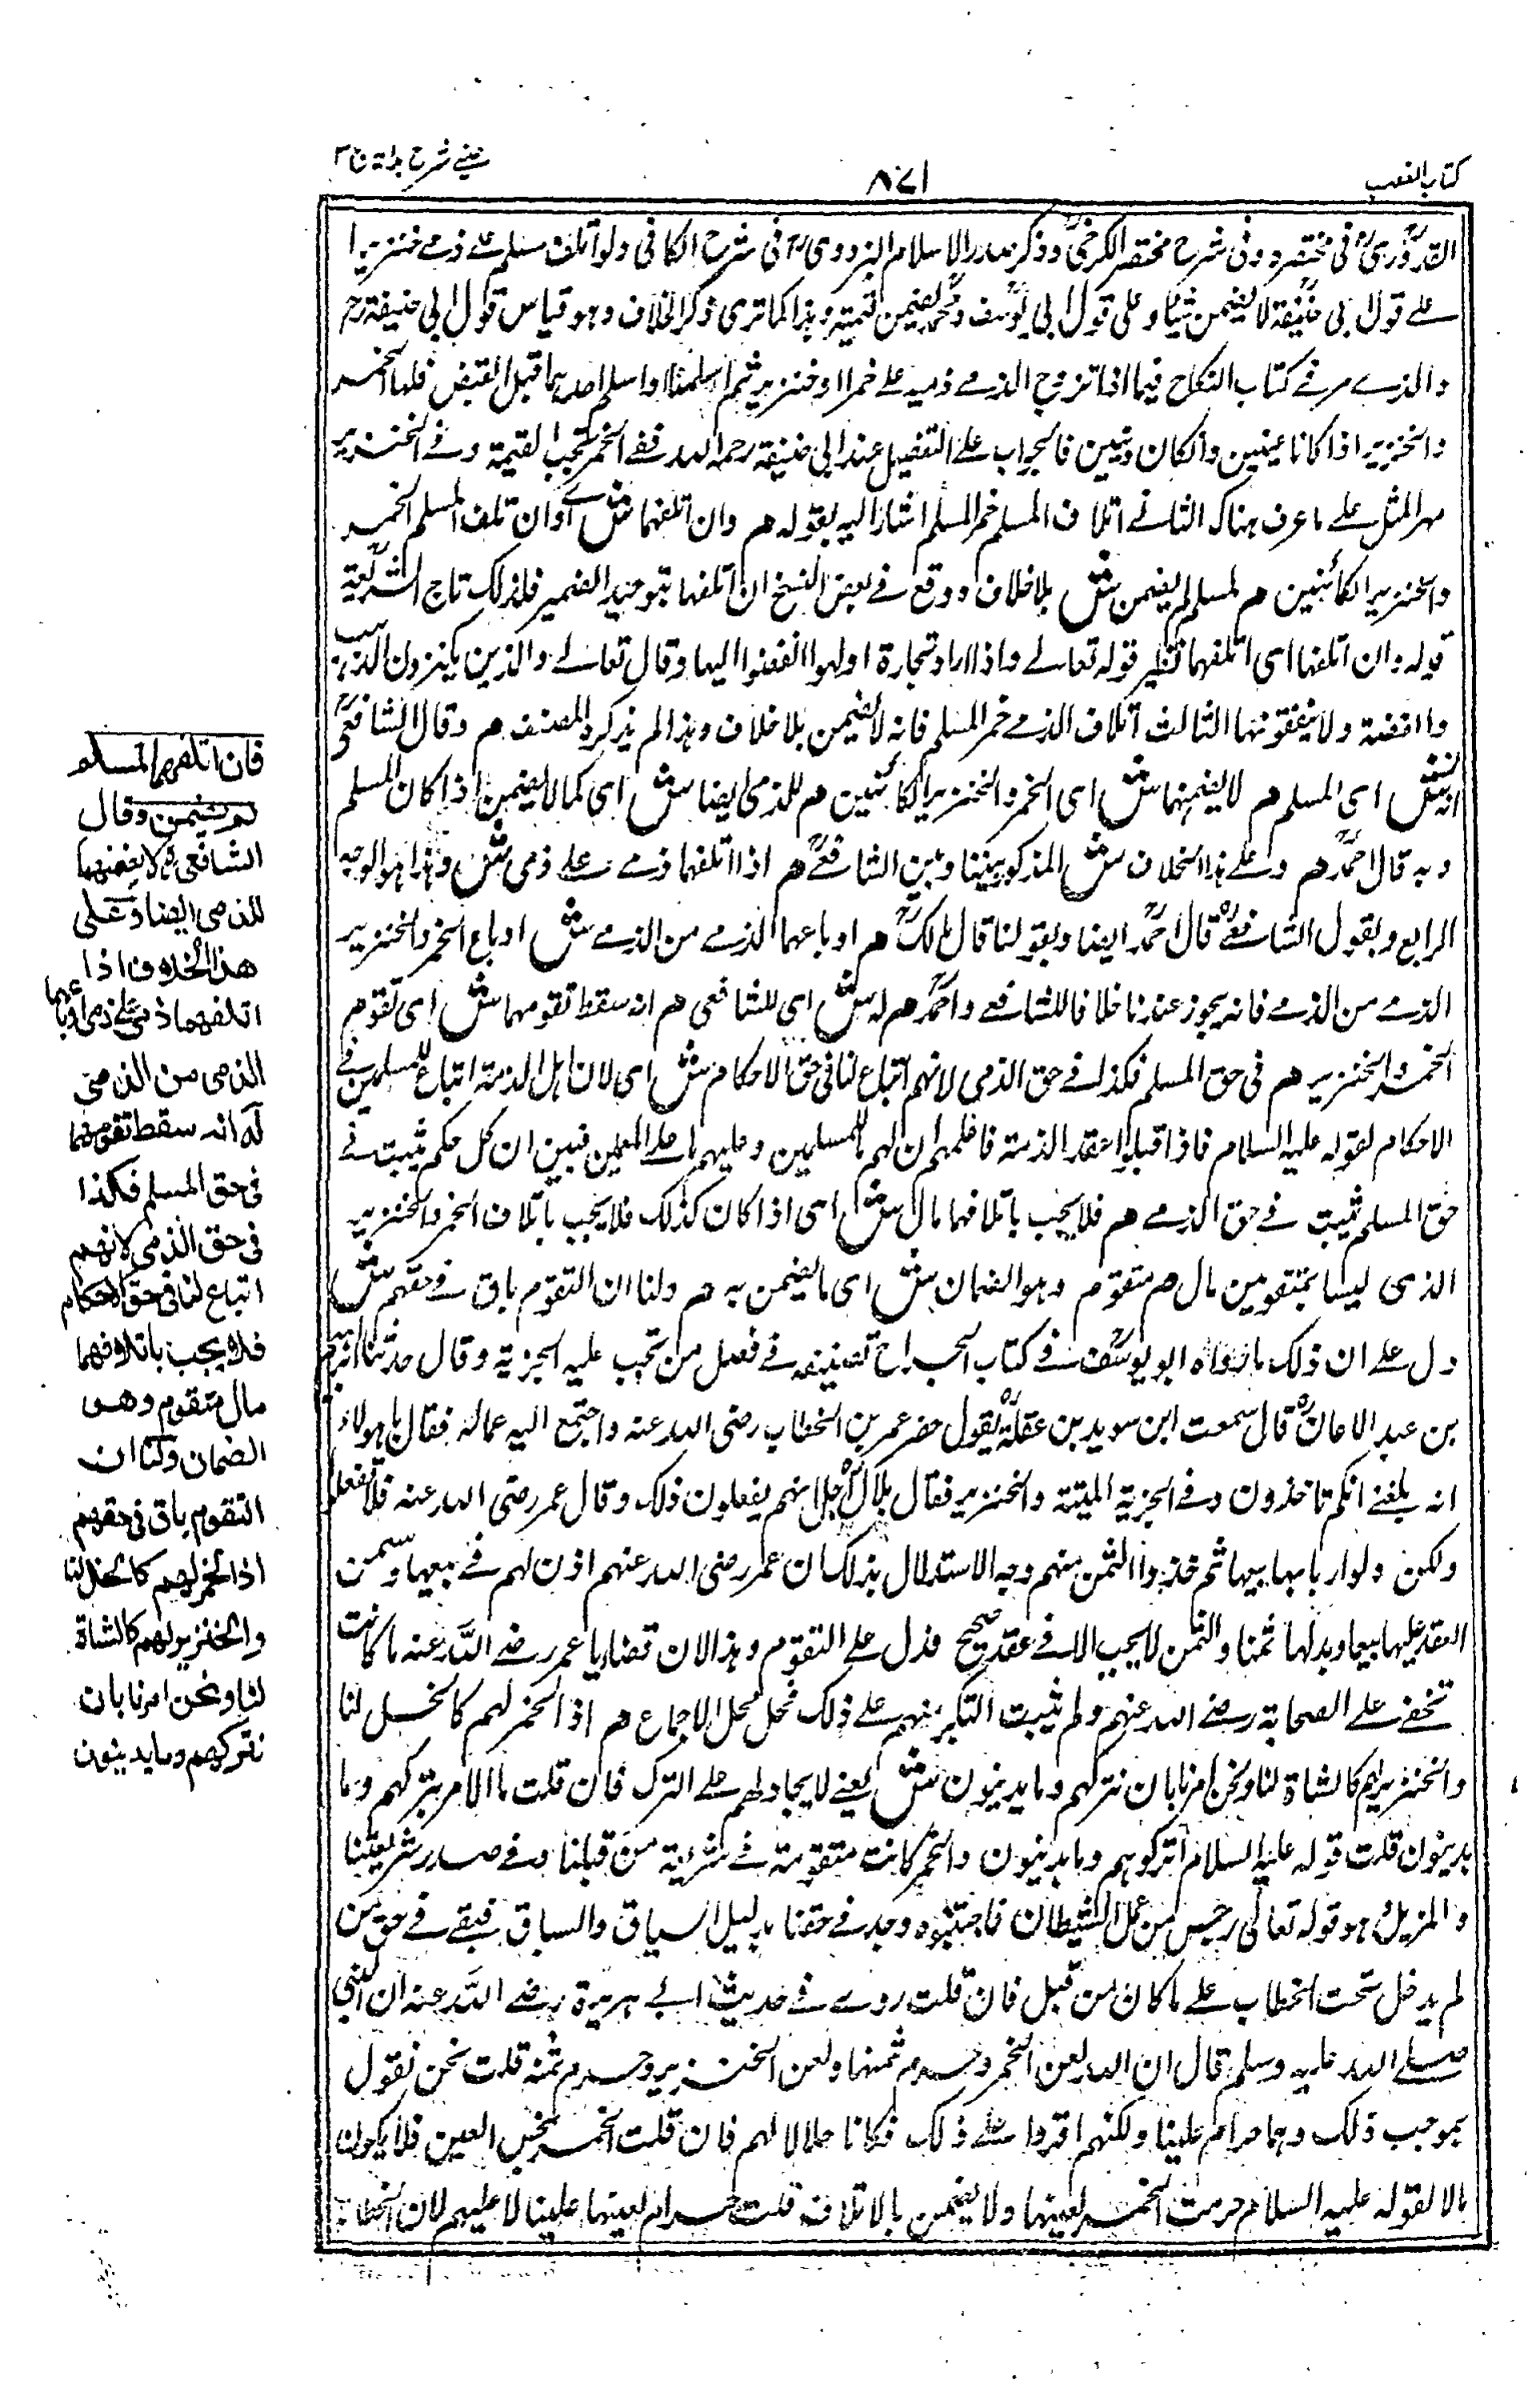 كتاب الغصب
٨٤١
عيني شرح هداية ج ٣
القدوريؒ في مختصره وفي شرح مختصر الكرخيؒ وذكر صدر الاسلام البزدويؒ في شرح الكافي ولو اتلف مسلم على ذمي خنزيرا
على قول ابي حنيفةؒ لا يضمن شيئا وعلى قول ابي يوسفؒ ومحمدؒ يضمن قيمته وهذا كما ترى ذكر الخلاف وهو قياس قول ابي حنيفة رح
والذي مر في كتاب النكاح فيما اذا تزوج الذمي ذمية على خمر او خنزير ثم اسلما او اسلم احدهما قبل القبض فلها الخمر
والخنزير اذا كانا عينين وان كان دينين فالجواب على التفصيل عند ابي حنيفة رحمه الله ففي الخمر تجب القيمة وفي الخنزير
مهر المثل على ما عرف هناك الثاني اتلاف المسلم خمر المسلم اشار اليه بقوله هم وان اتلفهما ش اي وان تلف المسلم الخمر
والخنزير الكائنين هم لمسلم لم يضمن ش بلا خلاف ووقع في بعض النسخ ان اتلفها بتوحيد الضمير فلذلك تاج الشريعة
قوله وان اتلفها اي اتلفهما نظير قوله تعالى واذا راوا تجارة او لهوا انفضوا اليها وقال تعالى والذين يكنزون الذهب
والفضة ولا ينفقونها الثالث اتلاف الذمي خمر المسلم فانه لا يضمن بلا خلاف وهذا لم يذكره المصنف هم وقال الشافعيؒ
ش اي المسلم هم لا يضمنهما ش اي الخمر والخنزير الكائنين هم للذمي ايضا ش اي كما لا يضمن اذا كان المسلم
وبه قال احمدؒ هم وعلى هذا الخلاف ش المذكور بيننا وبين الشافعيؒ هم اذا اتلفهما ذمي على ذمي ش وهذا هو الوجه
الرابع وبقول الشافعيؒ قال احمدؒ ايضا وبقولنا قال مالكؒ هم او باعهما الذمي من الذمي ش او باع الخمر والخنزير
الذمي من الذمي فانه يجوز عندنا خلافا للشافعي واحمدؒ هم له ش اي للشافعي هم انه سقط تقومهما ش اي تقوم
الخمر والخنزير هم في حق المسلم فكذا في حق الذمي لانهم اتباع لنا في حق الاحكام ش اي لان اهل الذمة اتباع للمسلمين في
الاحكام لقوله عليه السلام فاذا قبلوا عقد الذمة فاعلمهم ان لهم ما للمسلمين وعليهم ما على المسلمين فتبين ان كل حكم ثبت في
حق المسلم ثبت في حق الذمي هم فلا يجب باتلافهما مال ش اي اذا كان كذلك فلا يجب باتلاف الخمر والخنزير
الذي ليسا بمتقومين مال هم متقوم وهو الضمان ش اي ما يضمن به هم ولنا ان التقوم باق في حقهم ش
دل على ان ذلك ما رواه ابو يوسفؒ في كتاب الخراج تصنيفه في فصل من تجب عليه الجزية وقال حدثنا
بن عبد الاعلىؒ قال سمعت ابن سويد بن عقلةؒ يقول حضر عمر بن الخطاب رضي الله عنه واجتمع اليه عماله فقال يا هولاء
انه بلغني انكم تاخذون في الجزية الميتة والخنزير فقال بلالؓ اجل انهم يفعلون ذلك وقال عمر رضي الله عنه فلا تفعلوا
ولكن ولوا اربابها بيعها ثم خذوا الثمن منهم وجه الاستدلال بذلك ان عمر رضي الله عنهم اذن لهم في بيعها وسمى
العقد عليها بيعا وبدلها ثمنا والثمن لا يجب الا في عقد صحيح فدل على التقوم وهذا لان قضايا عمر رضي الله عنه ما كانت
تخفى على الصحابة رضي الله عنهم ولم يثبت النكير منهم على ذلك فحل محل الاجماع هم اذ الخمر لهم كالخل لنا
والخنزير لهم كالشاة لنا ونحن امرنا بان نتركهم وما يدينون ش يعني لا يجادلهم على الترك فان قلت ما الامر بتركهم وما
يدينون قلت قوله عليه السلام اتركوهم وما يدينون والخمر كانت متقومة في شريعة من قبلنا وفي صدر شريعتنا
والمزيل هو قوله تعالى رجس من عمل الشيطان فاجتنبوه وجد في حقنا بدليل السياق والسباق فبقي في حق من
لم يدخل تحت الخطاب على ما كان من قبل فان قلت روي في حديث ابي هريرة رضي الله عنه ان النبي
صلى الله عليه وسلم قال ان الله لعن الخمر وحرم ثمنها ولعن الخنزير وحرم ثمنه قلت نحن نقول
بموجب ذلك وهما حرام علينا ولكنهم اقروا على ذلك فكانا حلالا لهم فان قلت الخمر نجس العين فلا يكون
مالا لقوله عليه السلام حرمت الخمر لعينها ولا يضمن بالاتلاف قلت حرام لعينها علينا لا عليهم لان الخطاب
فان اتلفهما لمسلم
لم يضمن وقال
الشافعيؒ لا يضمنهما
للذمي ايضا وعلى
هذا الخلاف اذا
اتلفهما ذمي على ذمي او باعهما
الذمي من الذمي
له انه سقط تقومهما
في حق المسلم فكذا
في حق الذمي لانهم
اتباع لنا في حق الاحكام
فلا يجب باتلافهما
مال متقوم وهو
الضمان ولنا ان
التقوم باق في حقهم
اذ الخمر لهم كالخل لنا
والخنزير لهم كالشاة
لنا ونحن امرنا بان
نتركهم وما يدينون